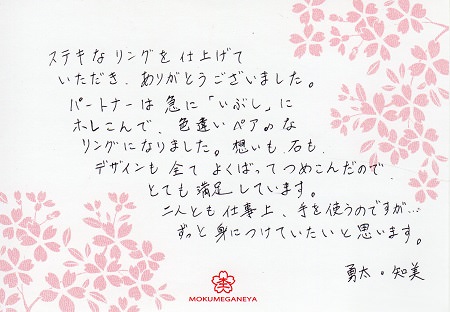 ステキなリングを仕上げて
いただき、ありがとうございました。
パートナーは急に「いぶし」に
ホレこんで、色違いペア。な
リングになりました。想いも、石も、
デザインも全てよくばってつめこんだので
とても満足しています。
二人とも仕事上、手を使うのですが…
ずっと身につけていたいと思います。
勇太・知美
MOKUMEGANEYA